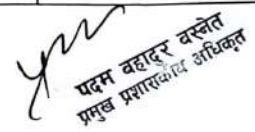 पदम बहादुर बस्नेत
प्रमुख प्रशासकीय अधिकृत